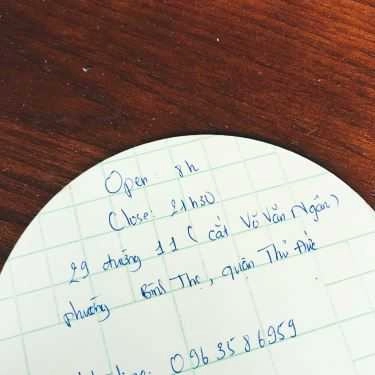 Open: 8h
Close: 21h30
29 đường 11 (cắt Võ Văn Ngân)
phường Bình Thọ, quận Thủ Đức
0963586959